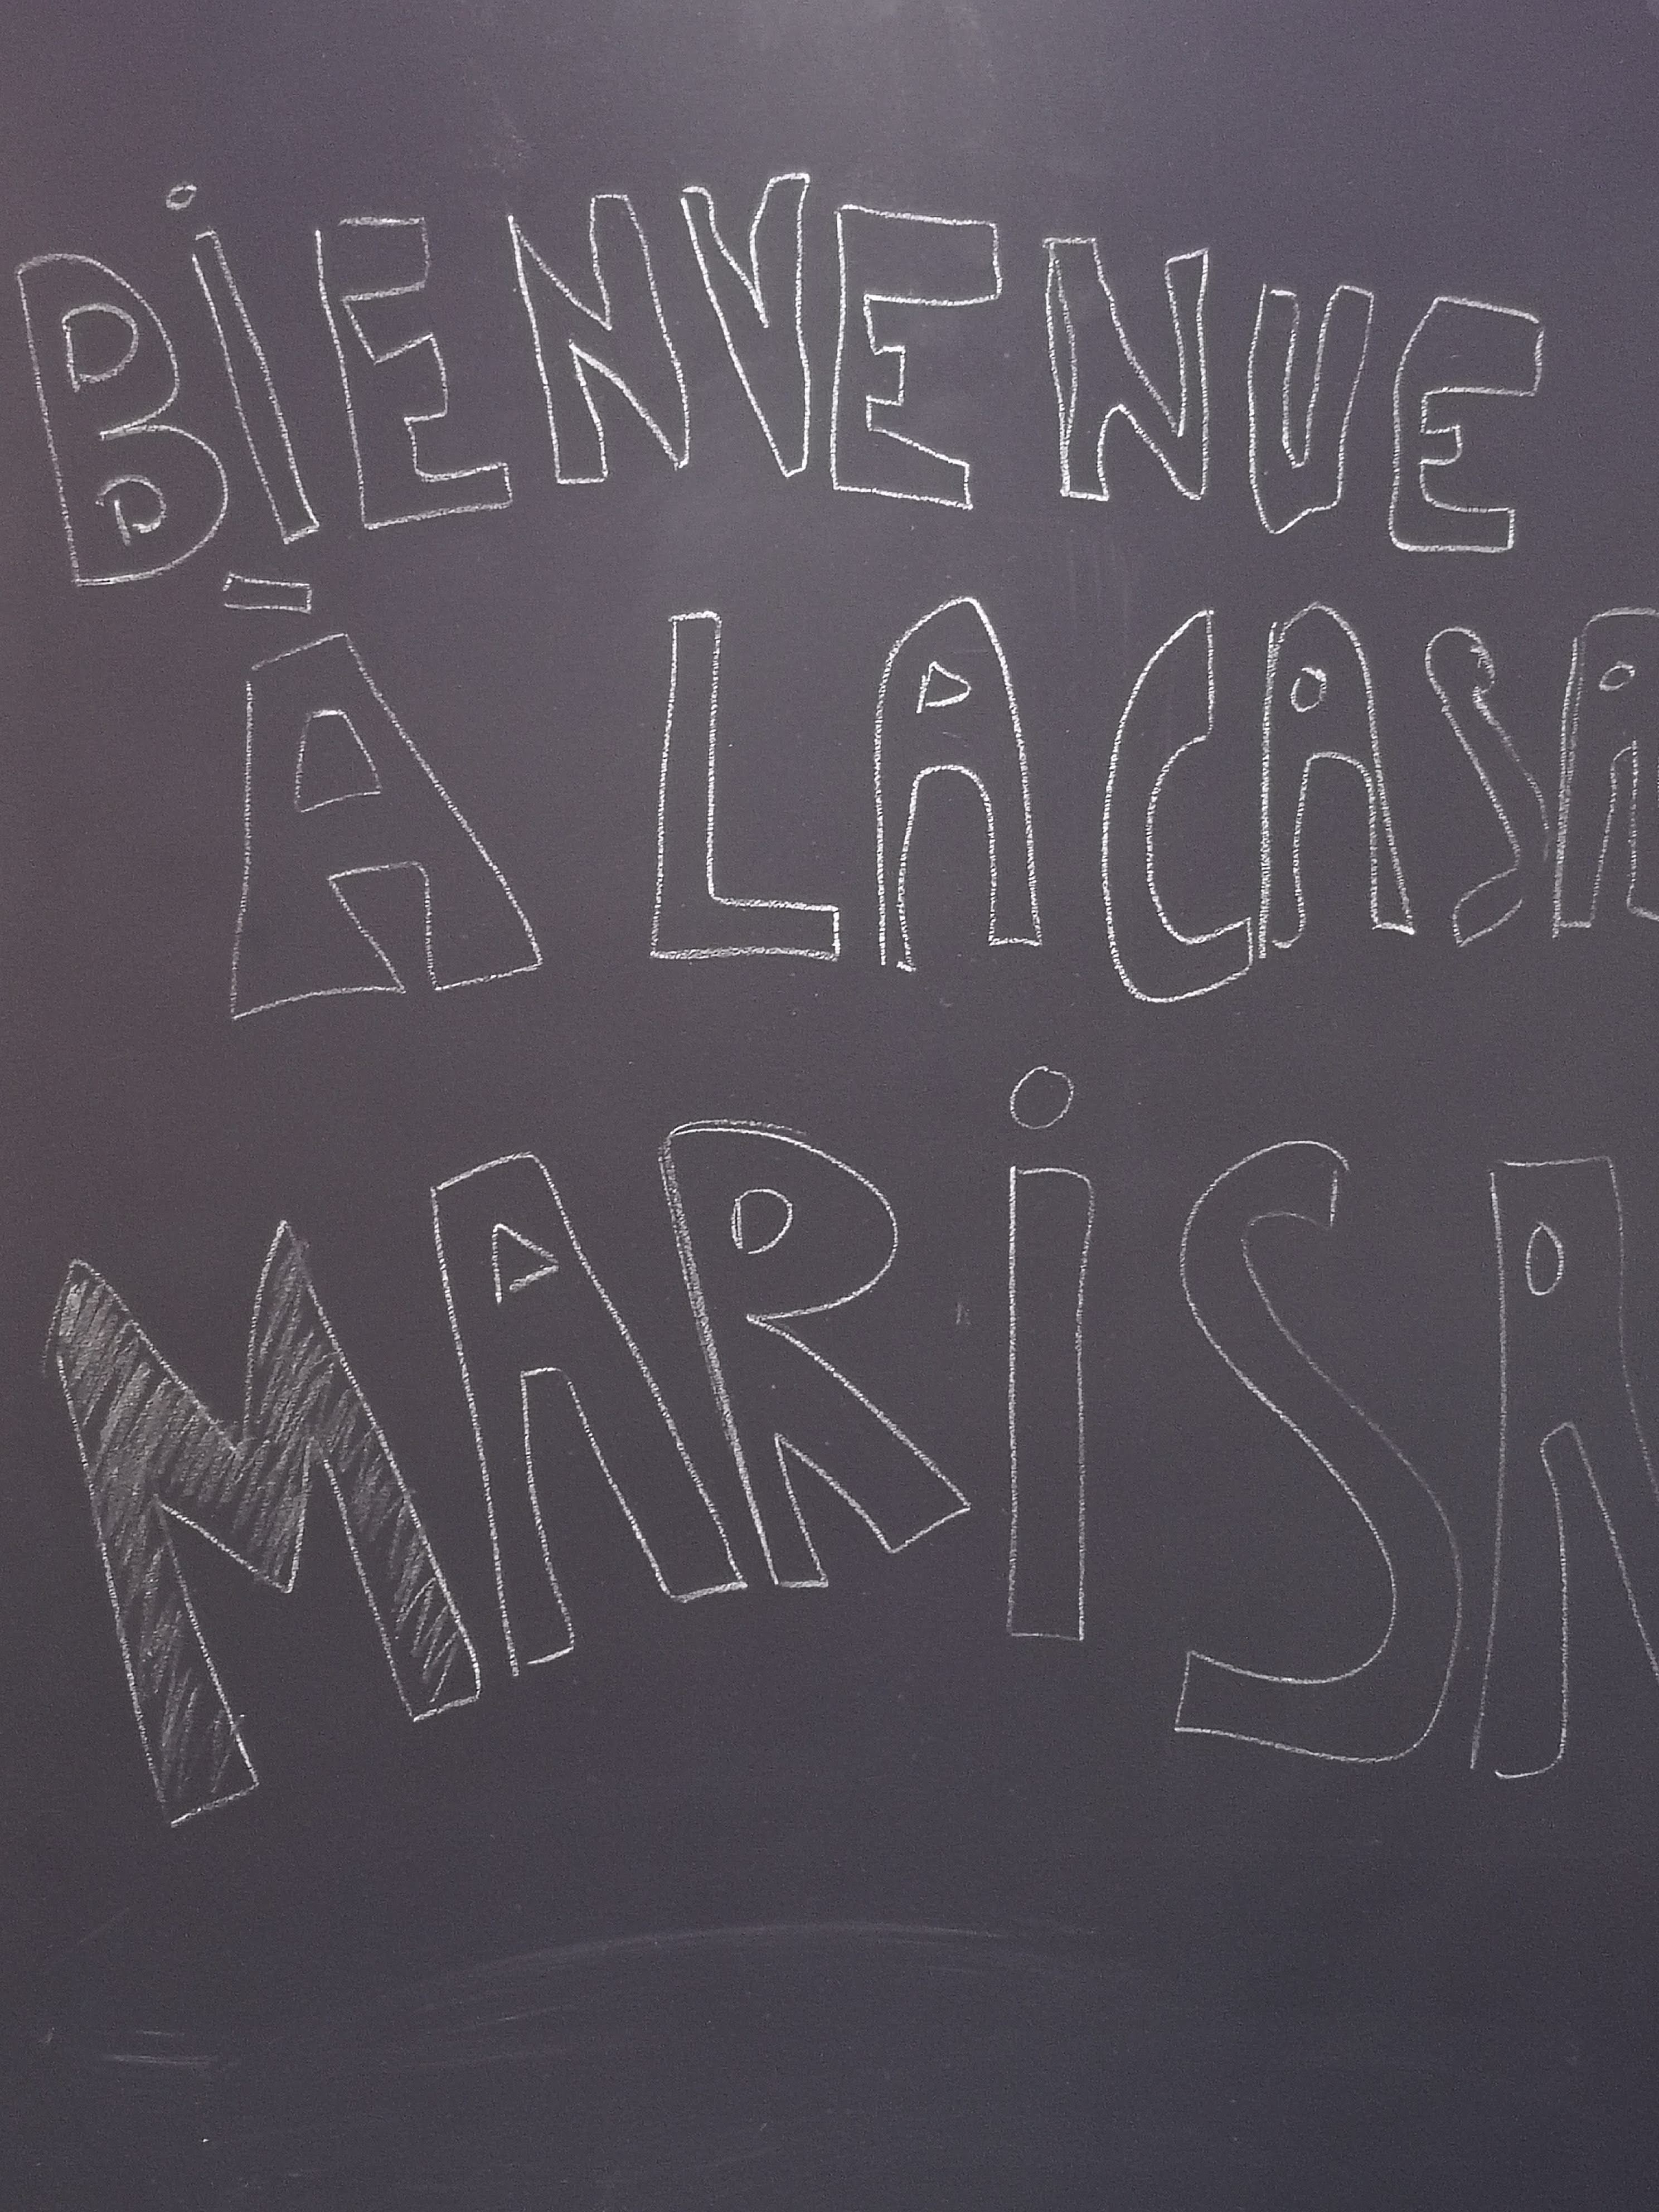 BiENVENUE
À LA CASA
MARiSA